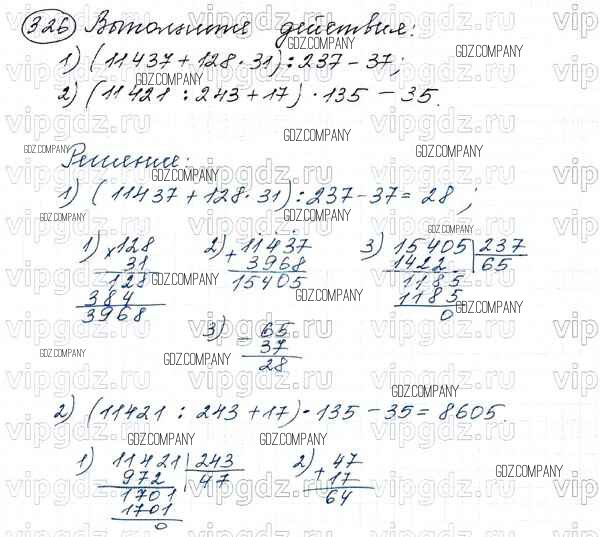 326 Выполните действия:
1) (11437 + 128 · 31) : 237 − 37;
2) (11421 : 243 + 17) · 135 − 35.
Решение:
1) (11437 + 128 · 31) : 237 − 37 = 28;
1) × 128
31
128
384
3968
2) + 11437
3968
15405
3) 15405 | 237
1422 | 65
1185
1185
0
3) − 65
37
28
2) (11421 : 243 + 17) · 135 − 35 = 8605.
1) 11421 | 243
972 | 47
1701
1701
0
2) + 47
17
64
GDZ.COMPANY
vipgdz.ru